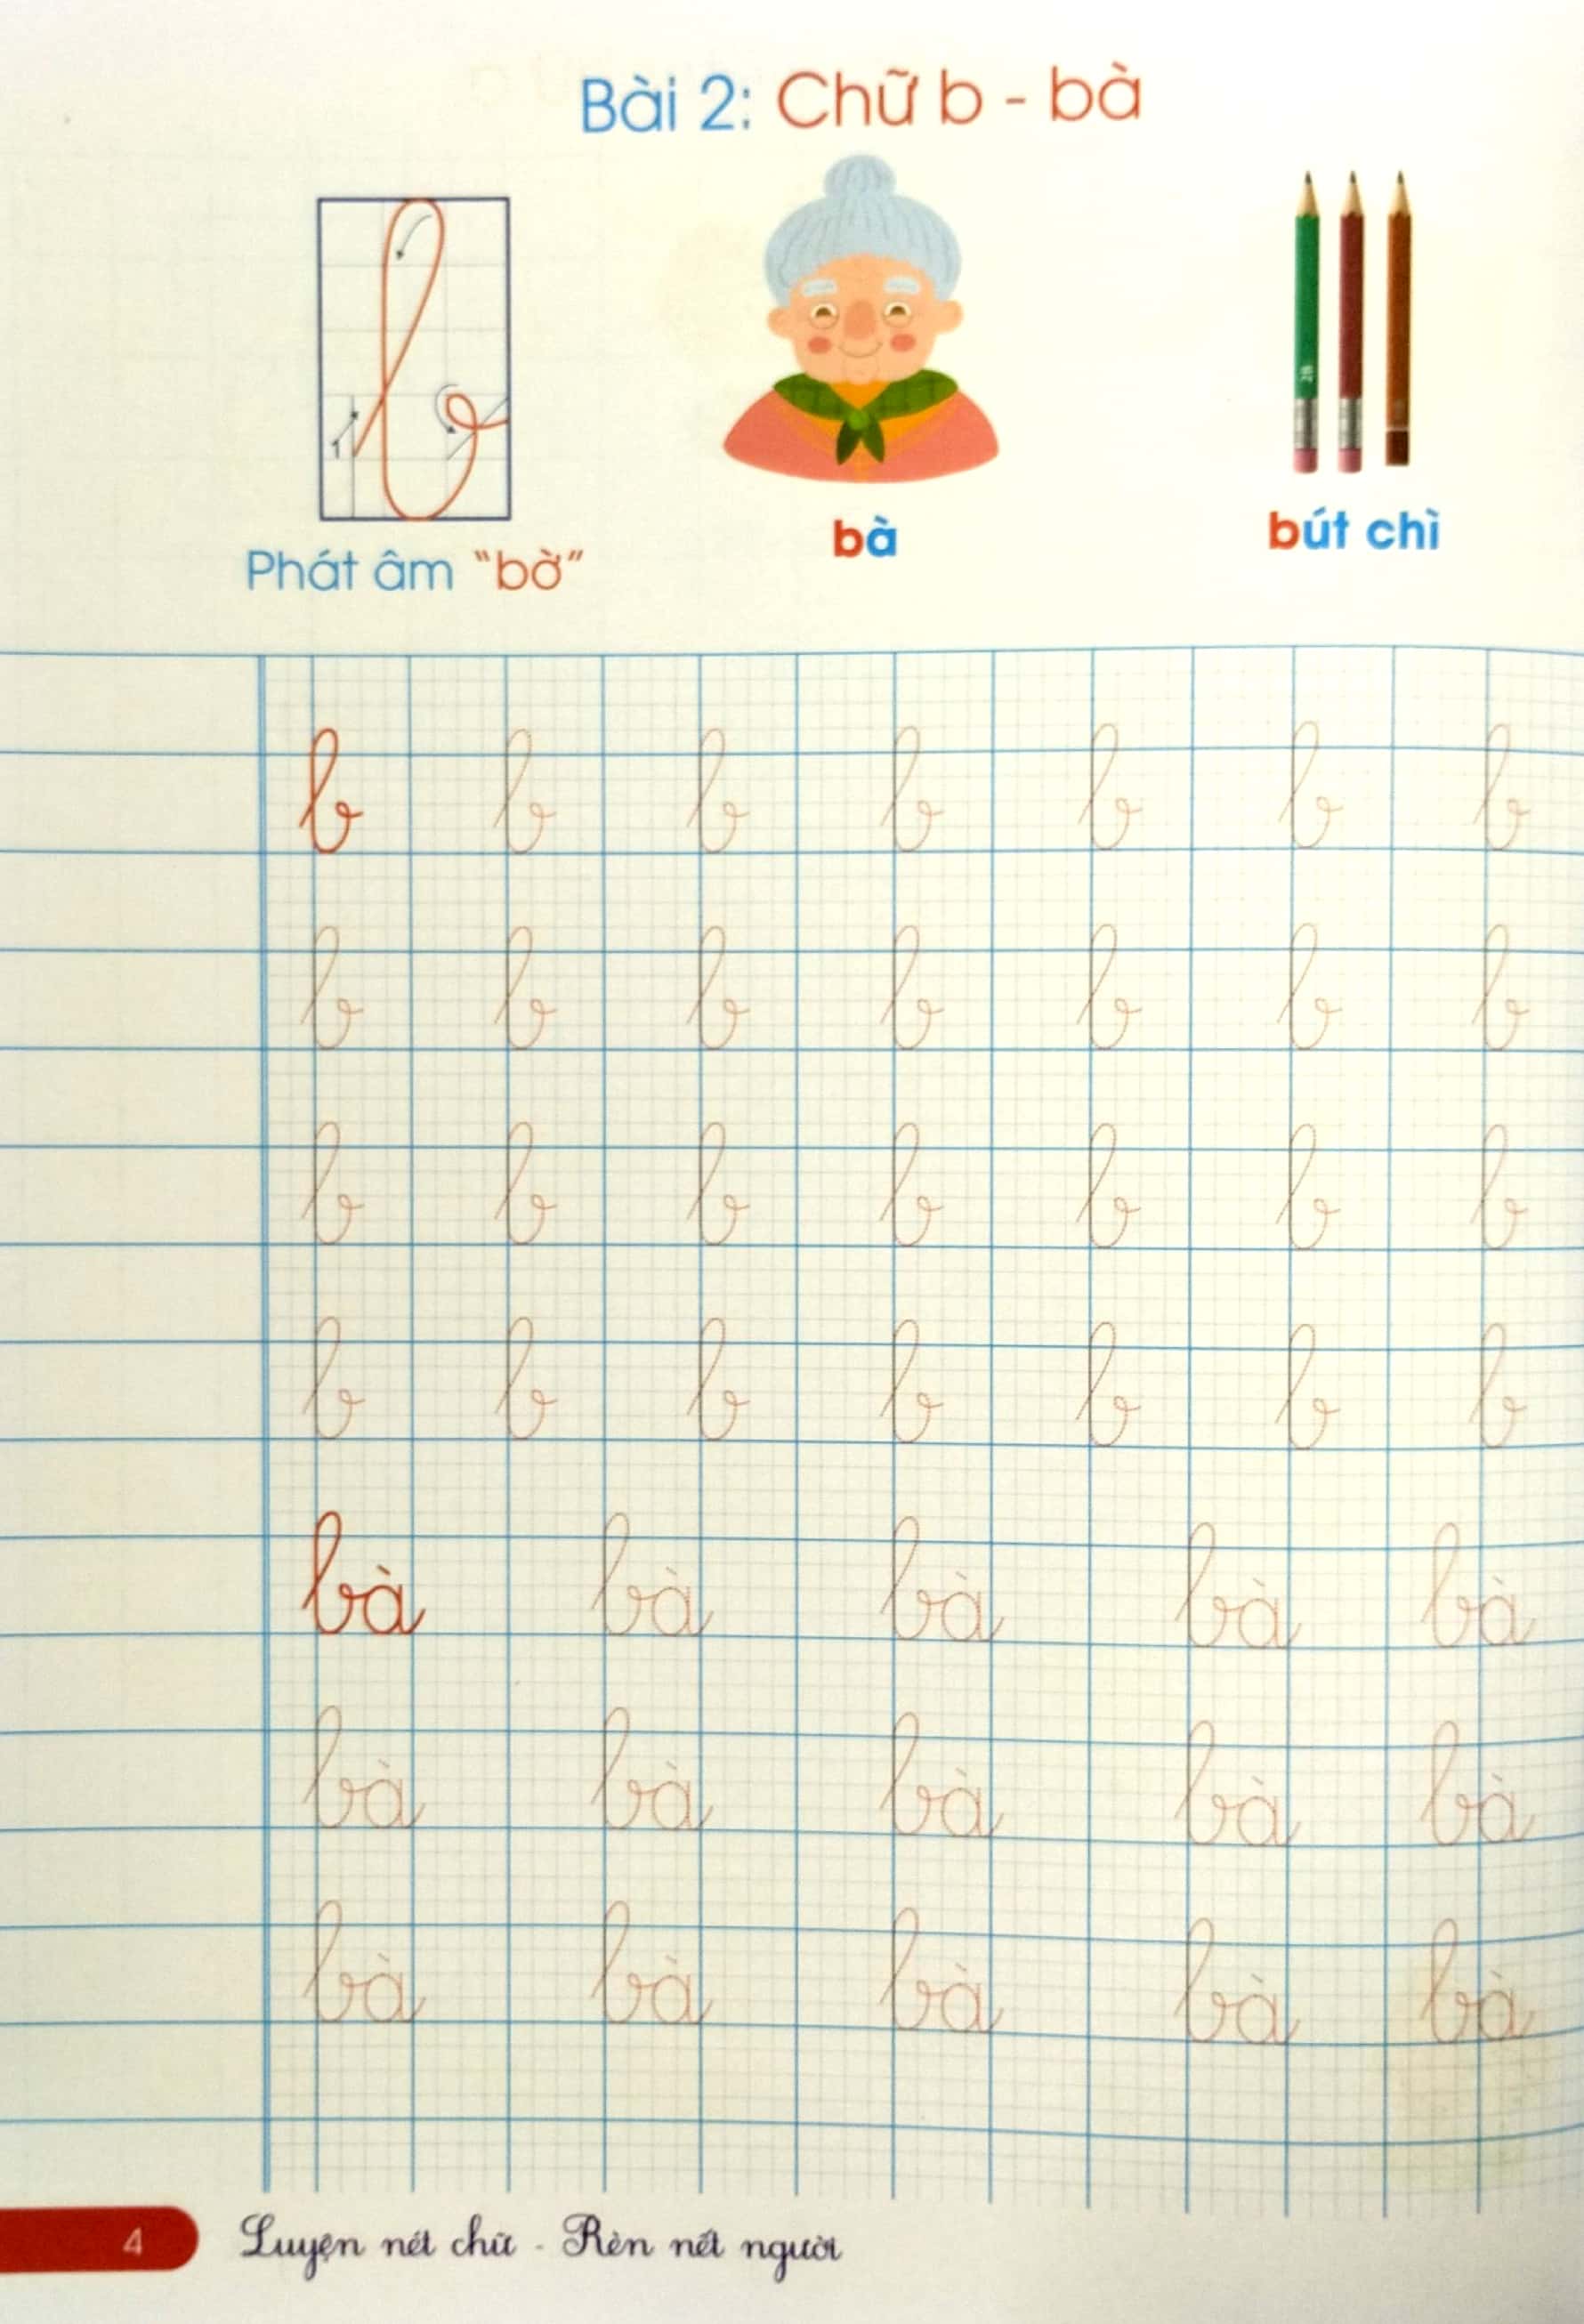 Bài 2: Chữ b - bà
Phát âm "bờ"
bà
bút chì
b b b b b b b
b b b b b b b
b b b b b b b
b b b b b b b
bà bà bà bà bà
bà bà bà bà bà
bà bà bà bà bà
4 Luyện nét chữ - Rèn nết người